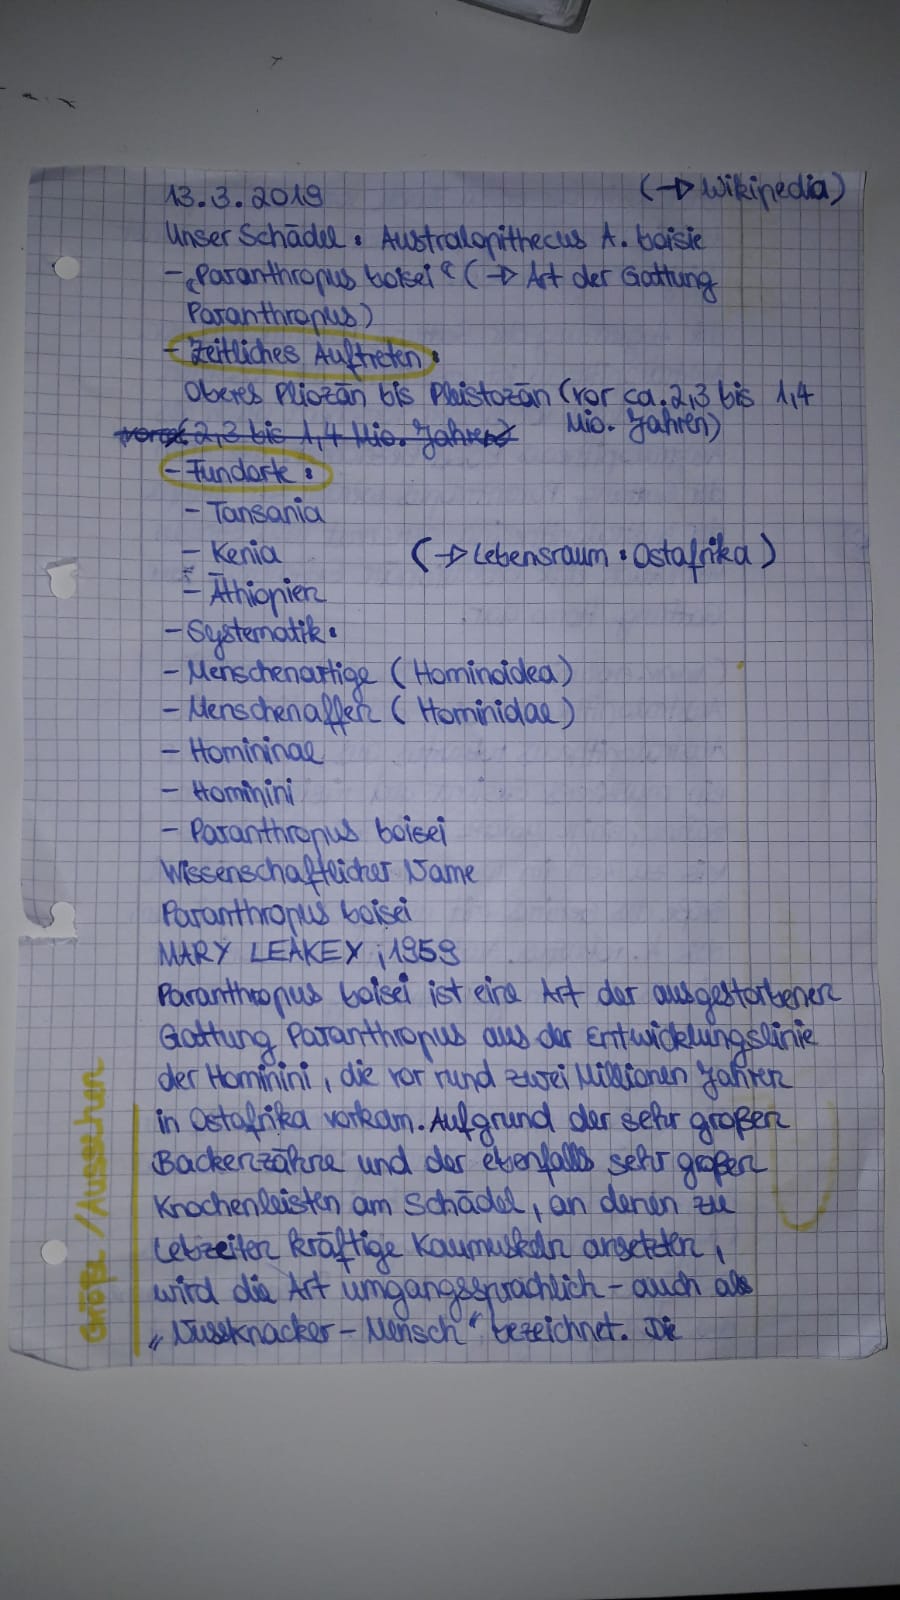 13.3.2019 (→ Wikipedia)
Unser Schädel: Australopithecus A. boisie
- „Paranthropus boisei“ (→ Art der Gattung
Paranthropus)
- Zeitliches Auftreten:
Oberes Pliozän bis Pleistozän (vor ca. 2,3 bis 1,4
Mio. Jahren)
2,3 bis 1,4 Mio. Jahren
- Fundorte:
- Tansania
- Kenia (→ Lebensraum: Ostafrika)
- Äthiopien
- Systematik:
- Menschenartige (Hominoidea)
- Menschenaffen (Hominidae)
- Homininae
- Hominini
- Paranthropus boisei
Wissenschaftlicher Name
Paranthropus boisei
MARY LEAKEY, 1959
Paranthropus boisei ist eine Art der ausgestorbenen
Gattung Paranthropus aus der Entwicklungslinie
der Hominini, die vor rund zwei Millionen Jahren
in Ostafrika vorkam. Aufgrund der sehr großen
Backenzähne und der ebenfalls sehr großen
Knochenleisten am Schädel, an denen zu
Lebzeiten kräftige Kaumuskeln ansetzten,
wird die Art umgangssprachlich - auch als
„Nussknacker - Mensch“ bezeichnet. Die
Größe / Aussehen